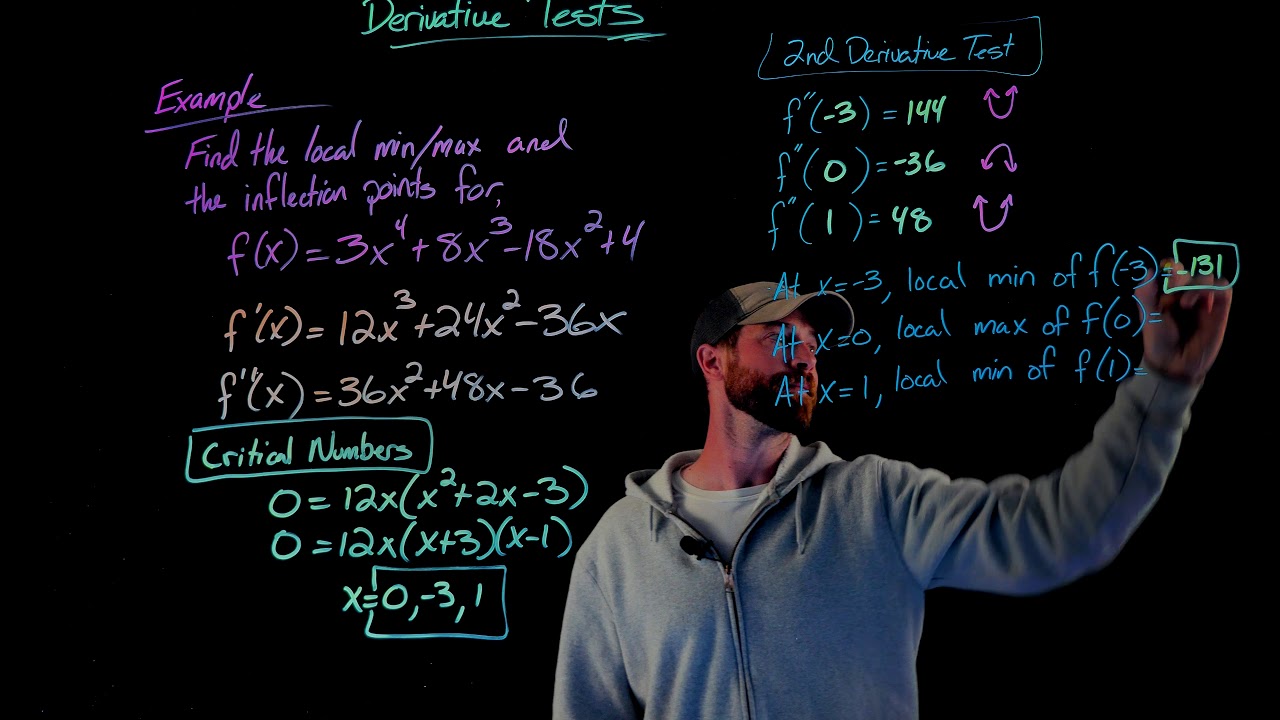 Derivative Tests
Example
Find the local min/max and
the inflection points for,
f(x) = 3x⁴+8x³-18x²+4
f'(x) = 12x³+24x²-36x
f''(x) = 36x²+48x-36
Critical Numbers
0=12x(x²+2x-3)
0=12x(x+3)(x-1)
x=0,-3,1
2nd Derivative Test
f''(-3) = 144
f''(0) = -36
f''(1) = 48
At x=-3, local min of f(-3)=-131
At x=0, local max of f(0)=
At x=1, local min of f(1)=